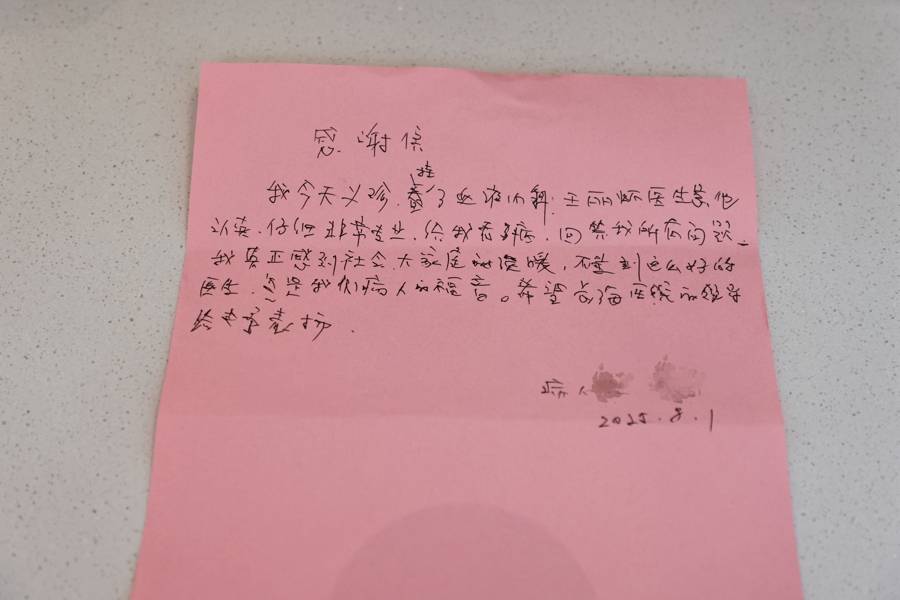 感谢信
挂
我今天义诊.了血液内科.王丽医生
认真.仔细非常专业.给我看病.回答我所有问题.
我真正感到社会大家庭的温暖,碰到这么好的
医生.这是我们病人的福音。希望长海医院的领导
给予表扬.
病人
2025.8.1